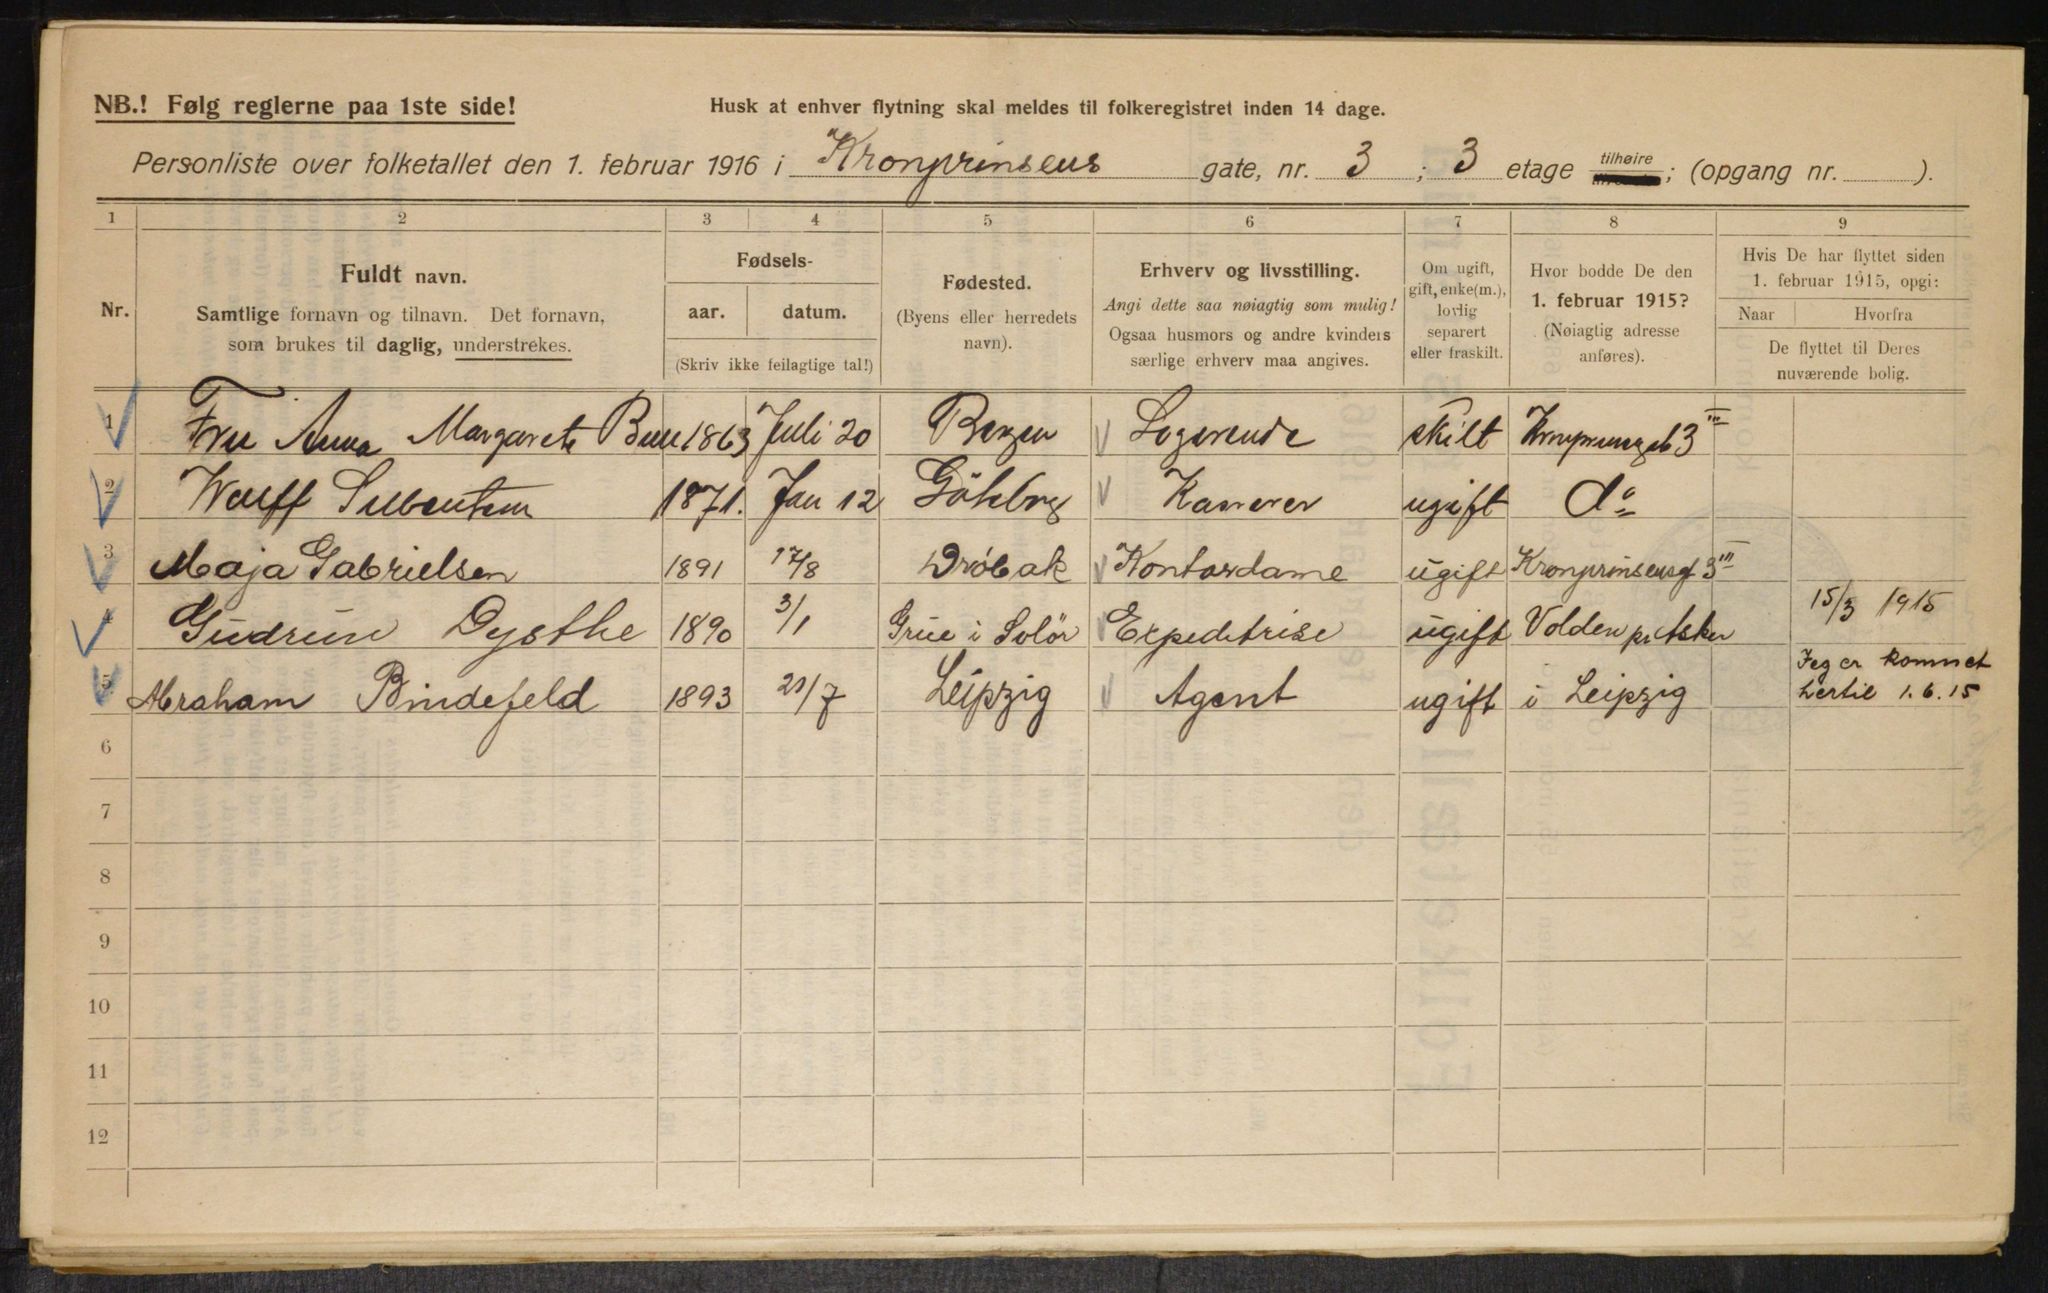 NB.! Følg reglerne paa 1ste side!
Husk at enhver flytning skal meldes til folkeregistret inden 14 dage.
Personliste over folketallet den 1. februar 1916 i Kronprinsens gate, nr. 3 ; 3 etage tilhøire ; (opgang nr. ).
1 2 3 4 5 6 7 8 9
Nr.
Fuldt navn.
Samtlige fornavn og tilnavn. Det fornavn,
som brukes til daglig, understrekes.
Fødsels-
aar. datum.
(Skriv ikke feilagtige tal!)
Fødested.
(Byens eller herredets
navn).
Erhverv og livsstilling.
Angi dette saa nøiagtig som mulig!
Ogsaa husmors og andre kvinders
særlige erhverv maa angives.
Om ugift,
gift, enke(m.),
lovlig
separert
eller fraskilt.
Hvor bodde De den
1. februar 1915?
(Nøiagtig adresse
anføres).
Hvis De har flyttet siden
1. februar 1915, opgi:
Naar Hvorfra
De flyttet til Deres
nuværende bolig.
1 Fru Anna Margarete 1863 Juli 20 Bergen Logerende skilt 3 III
2 1871. Jan 12 Göteborg Kaserer ugift do
3 Maja Gabrielsen 1891 17/8 Drøbak Kontordame ugift Kronprinsensg 3 III
4 Gudrun Dysthe 1890 3/1 Grue i Solör Expeditrise ugift Volden pr Asker 15/3 1915
5 Abraham Bindefeld 1893 21/7 Leipzig Agent ugift i Leipzig Jeg er kommet
hertil 1.6.15
6
7
8
9
10
11
12